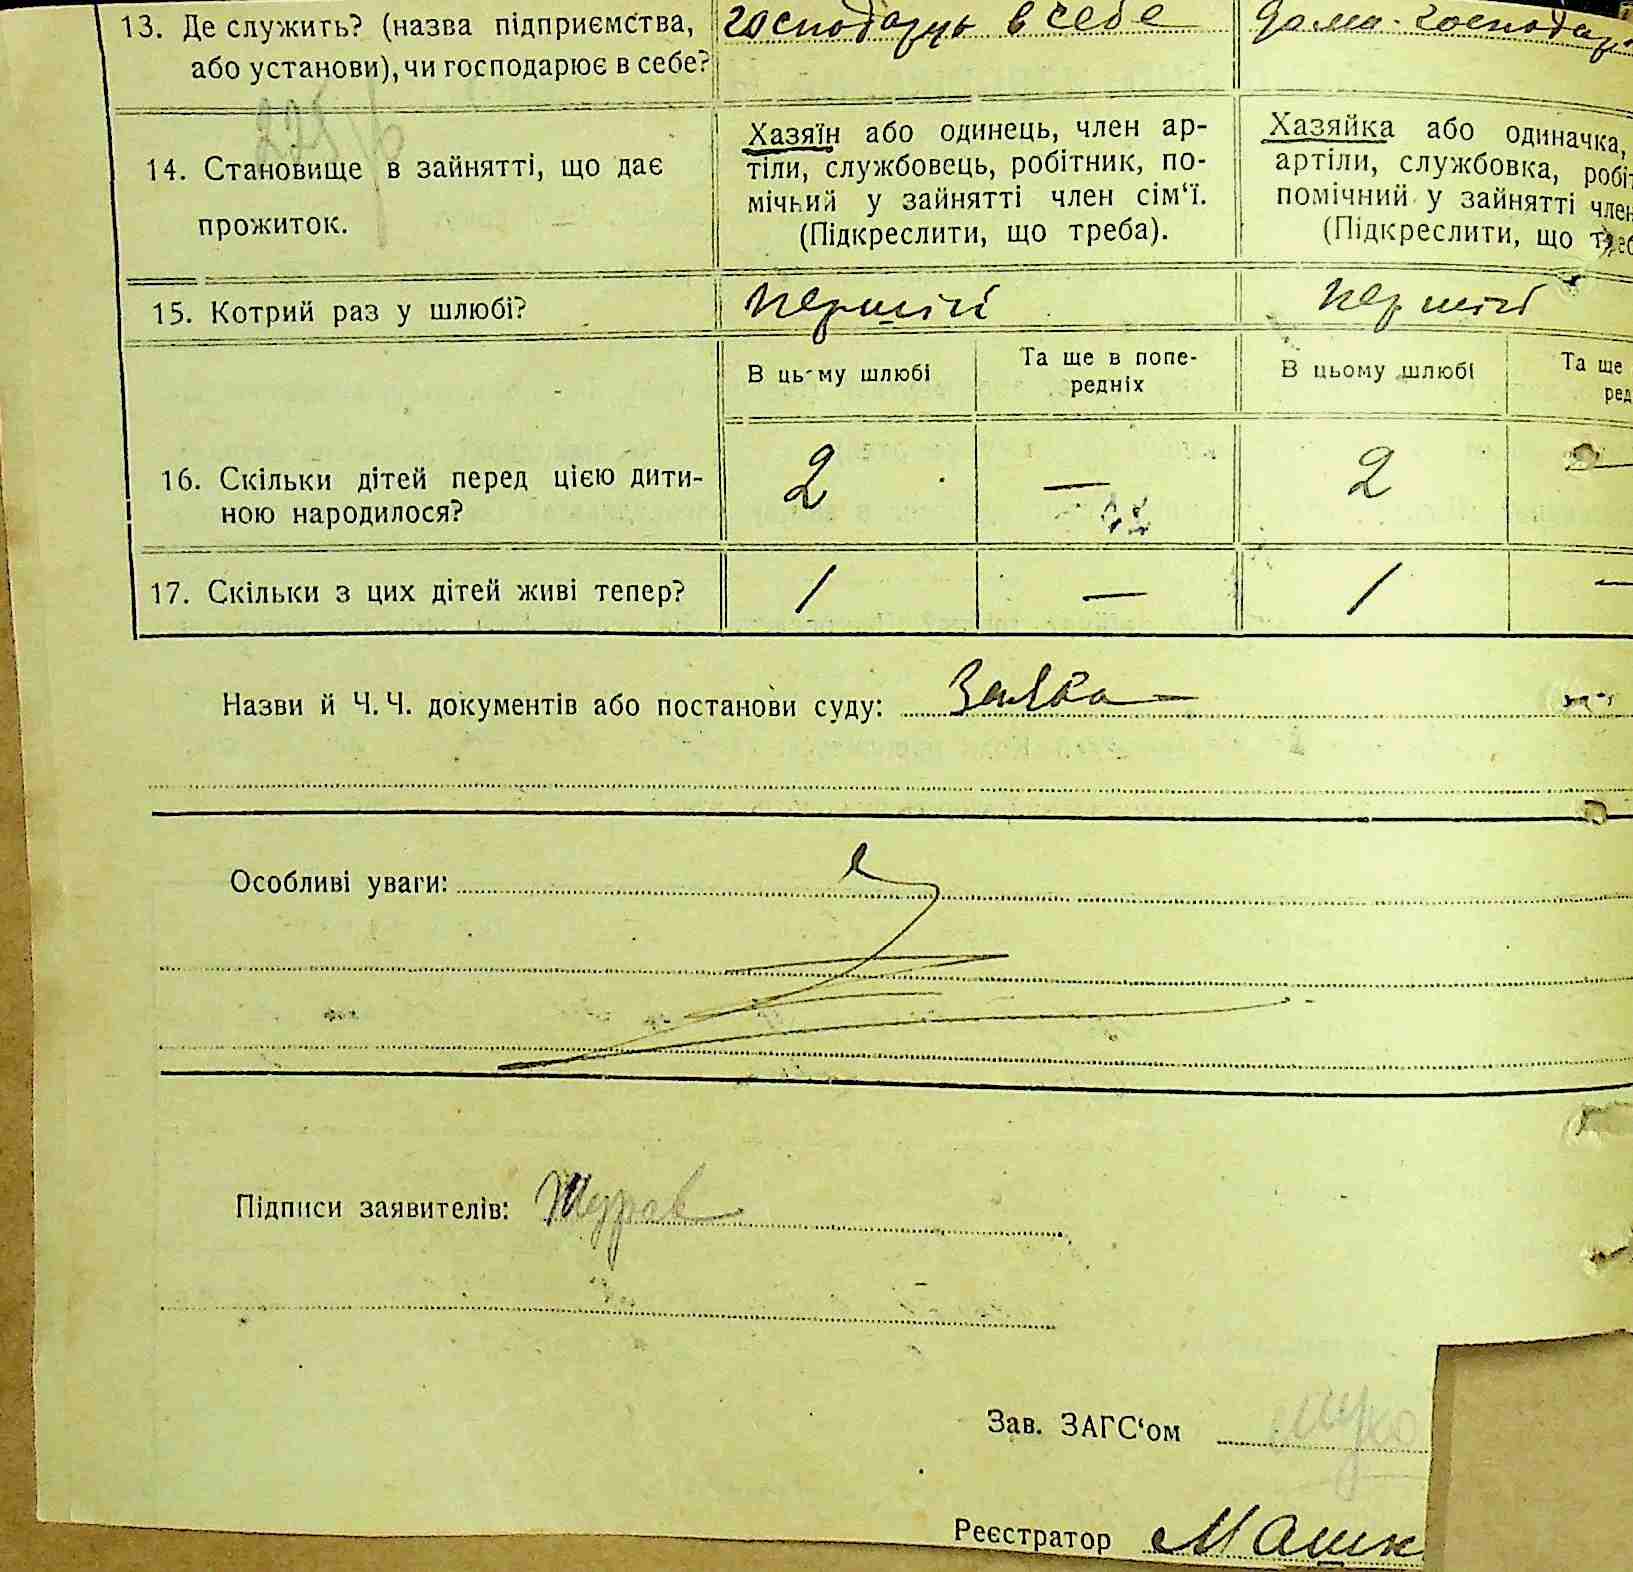 13. Де служить? (назва підприємства, господарць в себе дома. господар
або установи), чи господарює в себе?
14. Становище в зайнятті, що дає
прожиток.
Хазяїн або одинець, член ар-
тіли, службовець, робітник, по-
мічний у зайнятті член сім‘ї.
(Підкреслити, що треба).
Хазяйка або одиначка,
артіли, службовка, робіт
помічний у зайнятті член
(Підкреслити, що треб
15. Котрий раз у шлюбі? перший перший
В цьому шлюбі
Та ще в попе-
редніх
В цьому шлюбі
Та ще
ред
16. Скільки дітей перед цією дити-
ною народилося?
2 — 2 —
17. Скільки з цих дітей живі тепер? 1 — 1 —
Назви й Ч. Ч. документів або постанови суду: Заява —
Особливі уваги:
Підписи заявителів: Журав
Зав. ЗАГС‘ом
Реєстратор Машк